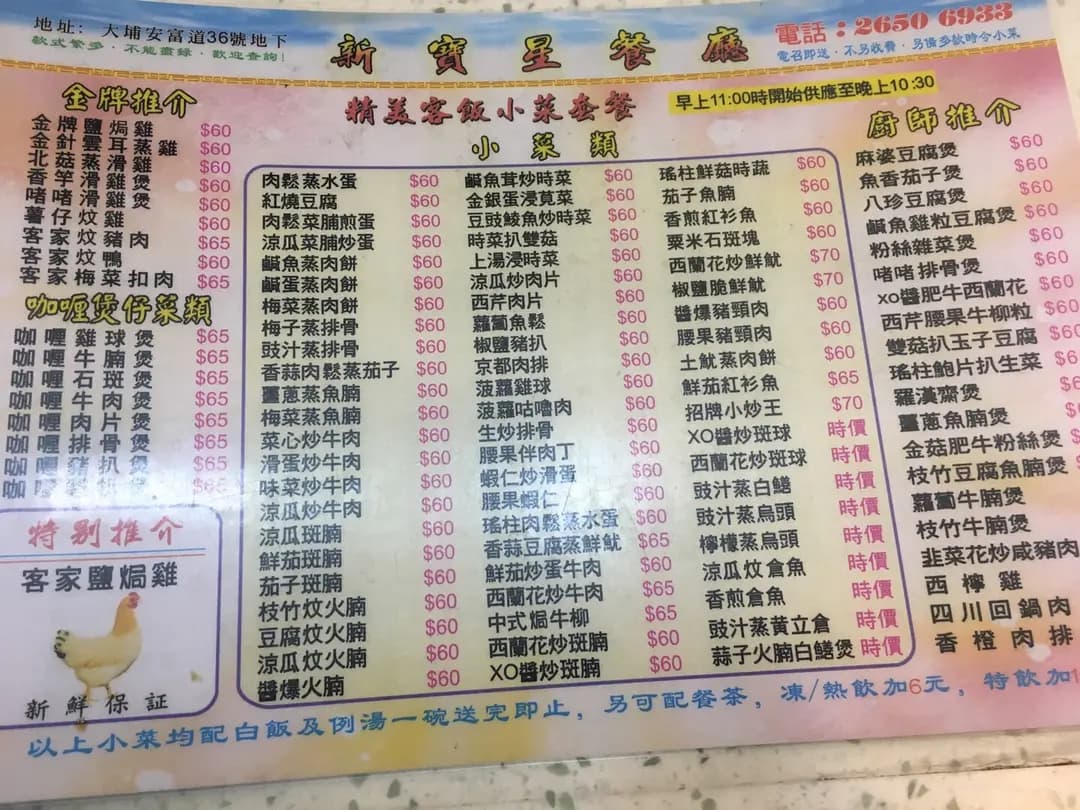 地址：大埔安富道36號地下
款式繁多．不能盡錄．歡迎查詢！
新寶星餐廳
電話：2650 6933
電召即送．不另收費．另備多款時令小菜
精美客飯小菜套餐
早上11:00時開始供應至晚上10:30
金牌推介
金牌鹽焗雞 $60
金針雲耳蒸雞 $60
北菇蒸滑雞 $60
香芋滑雞煲 $60
啫啫滑雞煲 $60
薯仔炆雞 $60
客家炆豬肉 $65
客家炆鴨 $60
客家梅菜扣肉 $65
咖喱煲仔菜類
咖喱雞球煲 $65
咖喱牛腩煲 $65
咖喱石斑煲 $65
咖喱牛肉煲 $65
咖喱肉片煲 $65
咖喱排骨煲 $65
咖喱豬扒煲 $65
咖喱 煲 $65
特別推介
客家鹽焗雞
新鮮保証
小菜類
肉鬆蒸水蛋 $60
紅燒豆腐 $60
肉鬆菜脯煎蛋 $60
涼瓜菜脯炒蛋 $60
鹹魚蒸肉餅 $60
鹹蛋蒸肉餅 $60
梅菜蒸肉餅 $60
梅子蒸排骨 $60
豉汁蒸排骨 $60
香蒜肉鬆蒸茄子 $60
薑蔥蒸魚腩 $60
梅菜蒸魚腩 $60
菜心炒牛肉 $60
滑蛋炒牛肉 $60
味菜炒牛肉 $60
涼瓜炒牛肉 $60
涼瓜斑腩 $60
鮮茄斑腩 $60
茄子斑腩 $60
枝竹炆火腩 $60
豆腐炆火腩 $60
涼瓜炆火腩 $60
醬爆火腩 $60
鹹魚茸炒時菜 $60
金銀蛋浸莧菜 $60
豆豉鯪魚炒時菜 $60
時菜扒雙菇 $60
上湯浸時菜 $60
涼瓜炒肉片 $60
西芹肉片 $60
蘿蔔魚鬆 $60
椒鹽豬扒 $60
京都肉排 $60
菠蘿雞球 $60
菠蘿咕嚕肉 $60
生炒排骨 $60
腰果伴肉丁 $60
蝦仁炒滑蛋 $60
腰果蝦仁 $60
瑤柱肉鬆蒸水蛋 $60
香蒜豆腐蒸鮮魷 $65
鮮茄炒蛋牛肉 $60
西蘭花炒牛肉 $65
中式焗牛柳 $65
西蘭花炒斑腩 $60
XO醬炒斑腩 $60
瑤柱鮮菇時蔬 $60
茄子魚腩 $60
香煎紅衫魚 $60
粟米石斑塊 $60
西蘭花炒鮮魷 $70
椒鹽脆鮮魷 $70
醬爆豬頸肉 $60
腰果豬頸肉 $60
土魷蒸肉餅 $60
鮮茄紅衫魚 $65
招牌小炒王 $70
XO醬炒斑球 時價
西蘭花炒斑球 時價
豉汁蒸白鱔 時價
豉汁蒸烏頭 時價
檸檬蒸烏頭 時價
涼瓜炆倉魚 時價
香煎倉魚 時價
豉汁蒸黃立倉 時價
蒜子火腩白鱔煲 時價
廚師推介
麻婆豆腐煲 $60
魚香茄子煲 $60
八珍豆腐煲 $60
鹹魚雞粒豆腐煲 $60
粉絲雜菜煲 $60
啫啫排骨煲 $60
XO醬肥牛西蘭花 $60
西芹腰果牛柳粒 $60
雙菇扒玉子豆腐 $60
瑤柱鮑片扒生菜
羅漢齋煲
薑蔥魚腩煲
金菇肥牛粉絲煲
枝竹豆腐魚腩煲
蘿蔔牛腩煲
枝竹牛腩煲
韭菜花炒咸豬肉
西檸雞
四川回鍋肉
香橙肉排
以上小菜均配白飯及例湯一碗送完即止，另可配餐茶，凍/熱飲加6元，特飲加